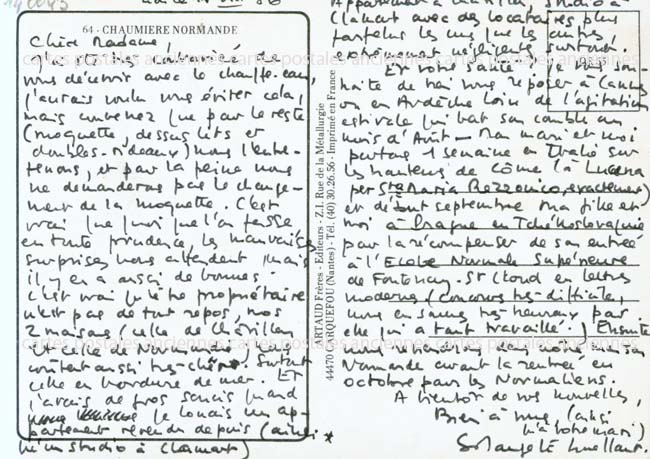 64 - CHAUMIERE NORMANDE
Chère Madame,
J'ai été très contrariée de
vous découvrir avec le chauffe-eau,
j'aurais voulu vous éviter cela,
mais convenez que par le reste
(moquette, dessus lits et
doubles-rideaux) nous l'entre-
tenons, et par la peine nous
ne demanderons pas le change-
ment de la moquette. C'est
vrai que quoi que l'on fasse
en toute prudence, les mauvaises
surprises nous attendent mais
il y en a aussi de bonnes.
C'est vrai qu'être propriétaire
n'est pas de tout repos, nos
2 maisons (celle de
et celle de Normandie) nous
coûtent aussi très cher. Surtout
celle en bordure de mer. Et
j'avais de gros soucis quand
je louais un ap-
partement revendu depuis (ainsi
qu'un studio à Clamart)
ARTAUD Frères - Editeurs - Z.I. Rue de la Métallurgie
44470 CARQUEFOU (Nantes) - Tél. (40) 30.26.56 - Imprimé en France
Appartement à studio à
Clamart avec des locataires plus
farfelus les uns que les autres,
extrêmement négligents surtout.
Et votre santé ? Je vous sou-
haite de bien vous reposer à Cannes
ou en Ardèche loin de l'agitation
estivale qui bat son comble au
mois d'Août - Mon mari et moi
partons 1 semaine en Italie sur
les hauteurs de Côme (à Lucena
per Sta Maria Rezzonico, exactement)
et début septembre ma fille et
moi à Prague en Tchécoslovaquie
pour la récompenser de son entrée
à l'Ecole Normale Supérieure
de Fontenay-St Cloud en lettres
modernes (concours très difficile,
nous en sommes très heureux par
elle qui a tant travaillé.) Ensuite
nous retournerons dans notre maison
Normande avant la rentrée en
octobre pour les Normaliens.
A bientôt de vos nouvelles,
Bien à vous (ainsi
qu'à votre mari)
Solange
cartes postales anciennes cartes postales anciennes cartes postales anciennes